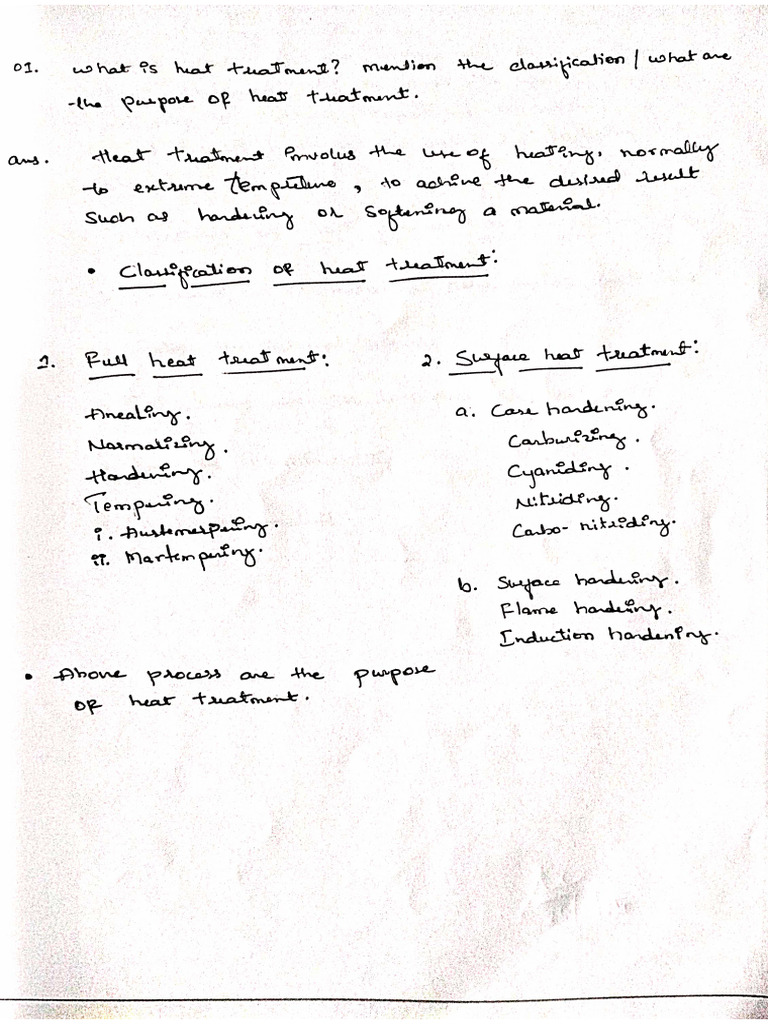 01. What is heat treatment? Mention the classification / what are
the purpose of heat treatment.
ans. Heat treatment involves the use of heating, normally
to extreme tempreture, to achive the desired result
Such as hardering or Softening a material.
• Classification of heat treatment:
1. Full heat treatment:
Anealing.
Normalizing.
Hardening.
Tempering.
i. Austemespering.
ii. Martempering.
2. Surface heat treatment:
a. Case hardening.
Carburizing.
Cyaniding.
Nitriding.
Carbo-nitriding.
b. Surface hardening.
Flame hardeing.
Induction hardening.
• Above process are the purpose
of heat treatment.